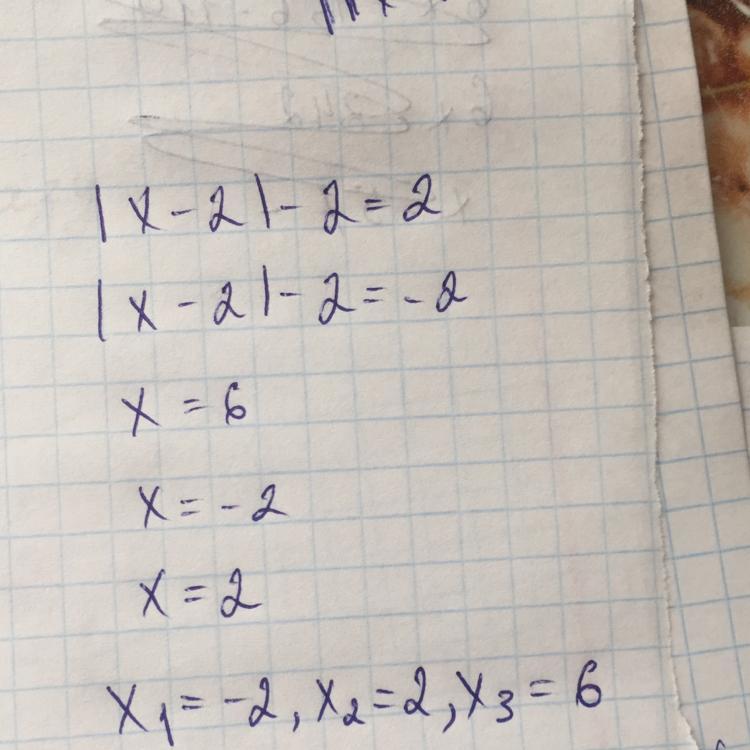 |x-2|-2=2
|x-2|-2=-2
x=6
x=-2
x=2
x₁=-2, x₂=2, x₃=6